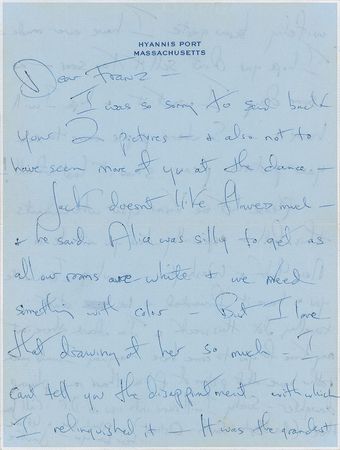 HYANNIS PORT
MASSACHUSETTS
Dear Franz –
I was so sorry to send back
your 2 pictures – & also not to
have seen more of you at the dance –
Jack doesn't like flowers much –
& he said Alice was silly to get as
all our rooms are white & we need
something with color – But I love
that drawing of her so much I
can't tell you the disappointment with which
I relinquished it – It was the grandest